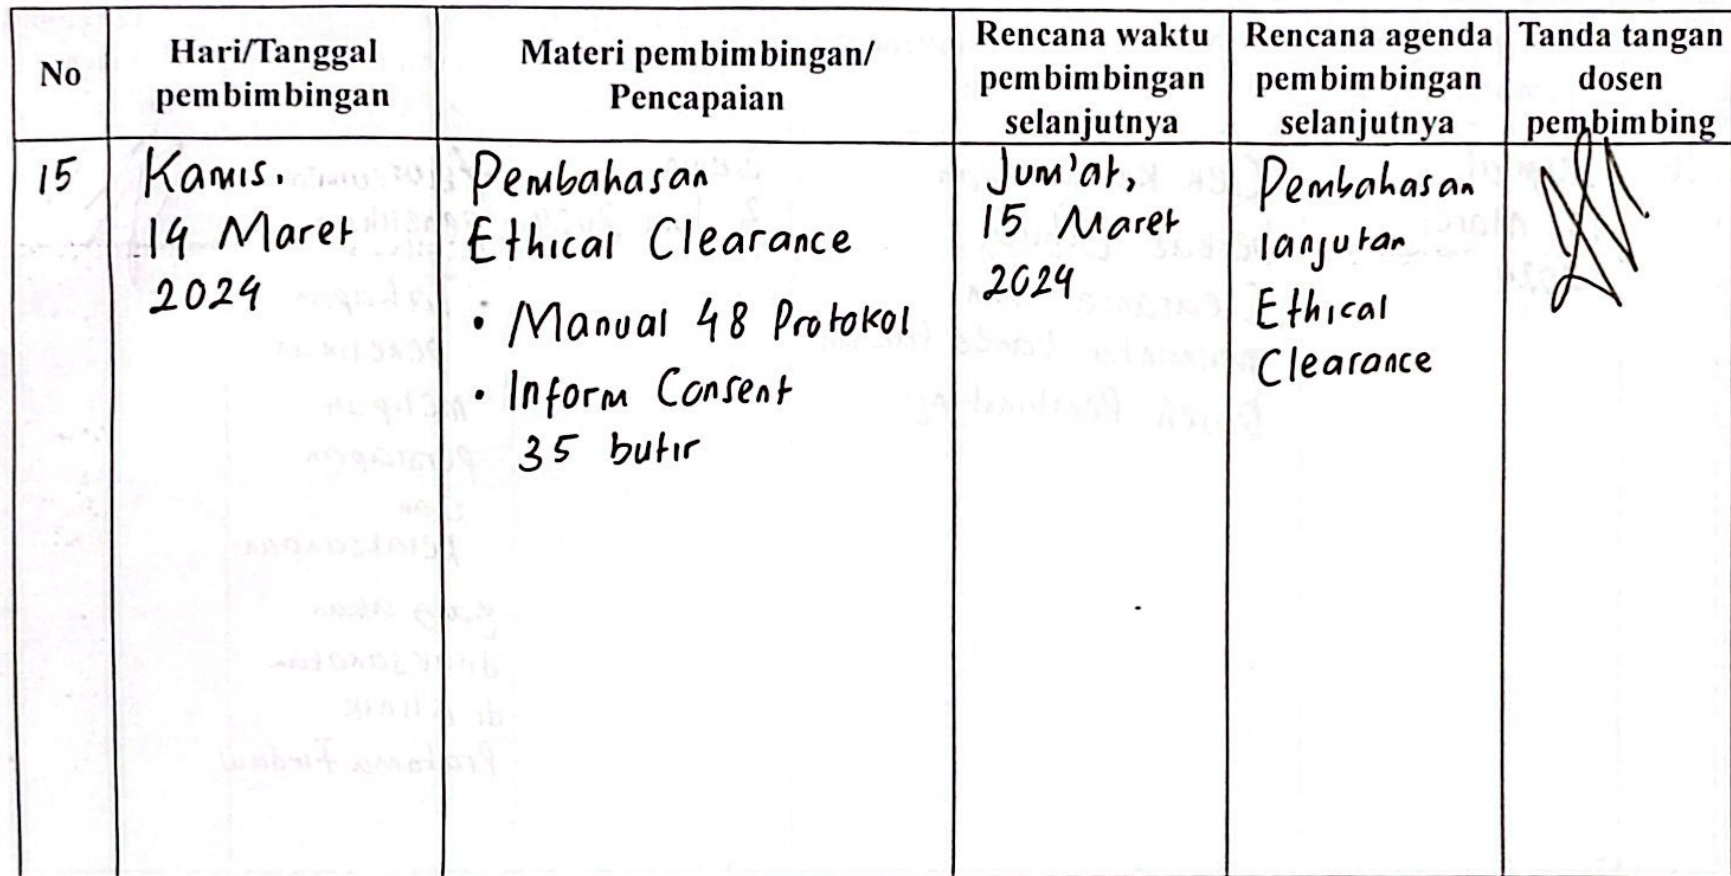 No
Hari/Tanggal
pembimbingan
Materi pembimbingan/
Pencapaian
Rencana waktu
pembimbingan
selanjutnya
Rencana agenda
pembimbingan
selanjutnya
Tanda tangan
dosen
pembimbing
15
Kamis.
14 Maret
2024
Pembahasan
Ethical Clearance
• Manual 48 Protokol
• Inform Consent
35 butir
Jum'at,
15 Maret
2024
Pembahasan
lanjutan
Ethical
Clearance